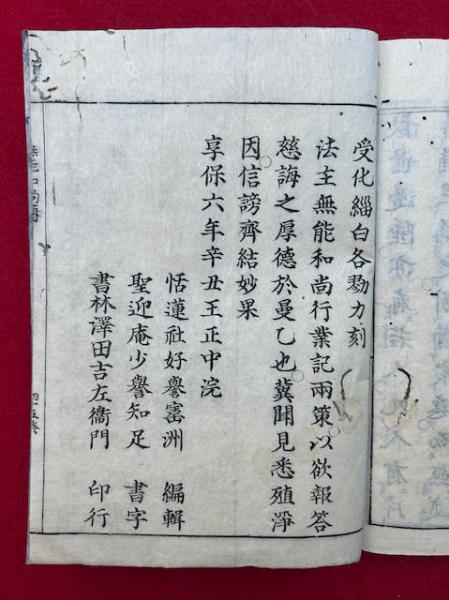 受化緇白各勠力刻
法主無能和尚行業記兩策以欲報答
慈誨之厚德於曼乙也冀聞見悉殖淨
因信謗齊結妙果
享保六年辛丑王正中浣
恬蓮社好譽寚洲 編輯
聖迎庵少譽知足 書字
書林澤田吉左衞門 印行